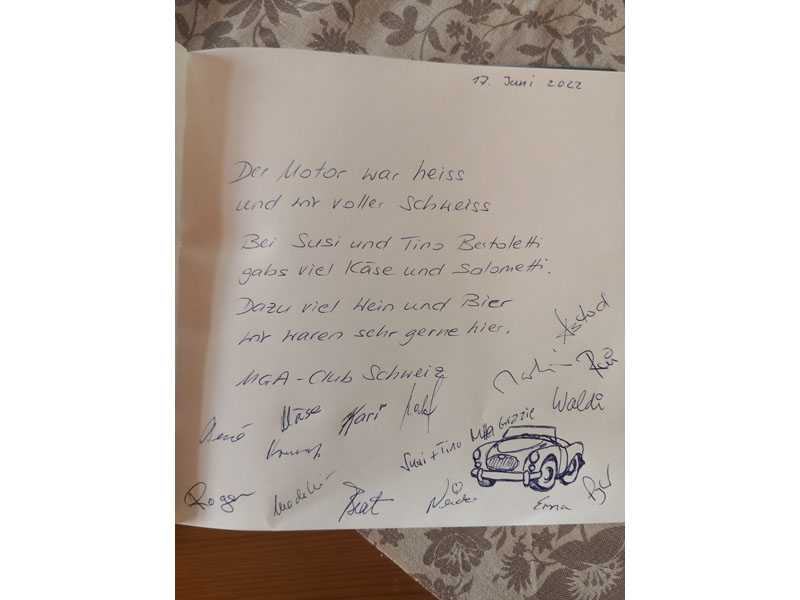 17. Juni 2022
Der Motor war heiss
und wir voller Schweiss
Bei Susi und Tino Bertoletti
gabs viel Käse und Salometti.
Dazu viel Wein und Bier
wir waren sehr gerne hier.
MGA-Club Schweiz
René
Kari
Waldi
Susi + Tino
Roger
Beat
Erna